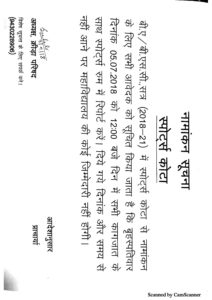 नामांकन सूचना
स्पोर्ट्स कोटा
बी.ए./बी.एस.सी.सत्र (2018–21) में स्पोर्ट्स कोटा से नामांकन
के लिए सभी आवेदक को सूचित किया जाता है कि बृहस्पतिवार
दिनांक 05.07.2018 को 12:00 बजे दिन में सभी कागजात के
साथ स्पोर्ट्स रूम में रिपोर्ट करें। दिये गये दिनांक और समय से
नहीं आने पर महाविद्यालय की कोई जिम्मेदारी नहीं होगी।
आदेशानुसार
प्राचार्या
अध्यक्ष, क्रीड़ा परिषद
विशेष सूचना के लिए सम्पर्क करें।
Scanned by CamScanner